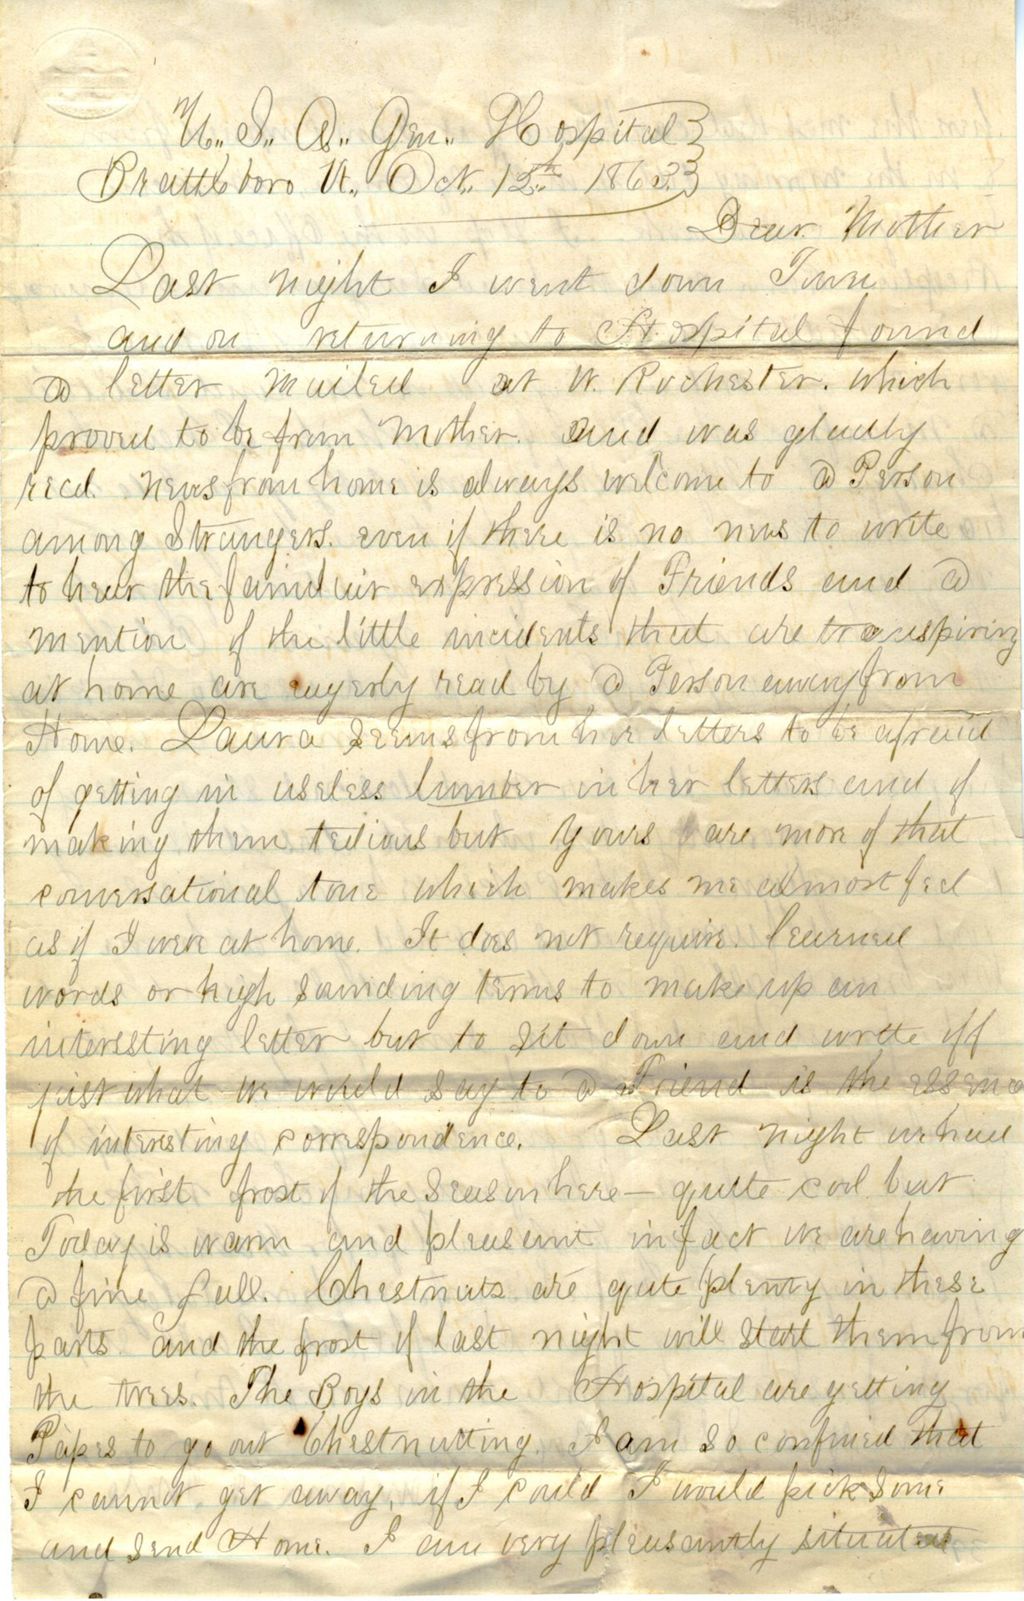 U.. S.. A.. Gen.. Hospital
Brattleboro Vt.. Oct.. 12th 1863.
Dear Mother
Last night I went down Town
and on returning to Hospital found
a letter mailed at W. Rochester. which
proved to be from Mother. and was gladly
recd. News from home is always welcome to a Person
among Strangers. even if there is no news to write
to hear the familiar expression of Friends and a
mention of the little incidents that are transpiring
at home are eagerly read by a Person away from
Home. Laura seems from her letters to be afraid
of getting in useless lumber in her letters and of
making them tedious but Yours are more of that
conversational tone which makes me almost feel
as if I were at home. It does not require learned
words or high sounding terms to make up an
interesting letter but to sit down and write off
just what we would say to a Friend is the essence
of interesting correspondence. Last night we had
the first frost of the season here — quite cool but
Today is warm and pleasant in fact we are having
a fine fall. Chestnuts are quite plenty in these
parts and the frost of last night will start them from
the trees. The Boys in the Hospital are getting
Papes to go out Chestnutting. I am so confined that
I cannot get away, if I could I would pick some
and send Home. I am very pleasantly situated